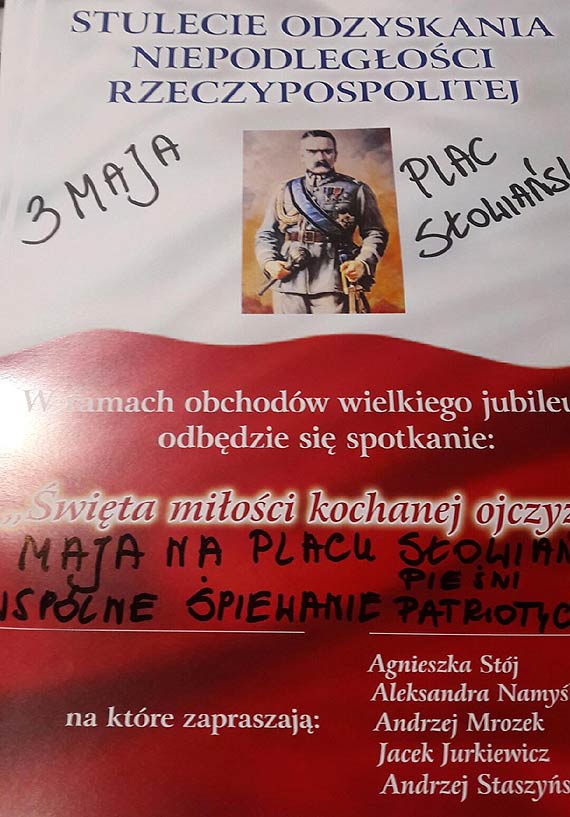 STULECIE ODZYSKANIA
NIEPODLEGŁOŚCI
RZECZYPOSPOLITEJ
3 MAJA
PLAC
SŁOWIAŃSK
W ramach obchodów wielkiego jubileu
odbędzie się spotkanie:
„Święta miłości kochanej ojczyz
MAJA NA PLACU SŁOWIAŃ
WSPÓLNE ŚPIEWANIE PIEŚNI PATRIOTYC
na które zapraszają:
Agnieszka Stój
Aleksandra Namyś
Andrzej Mrozek
Jacek Jurkiewicz
Andrzej Staszyńs